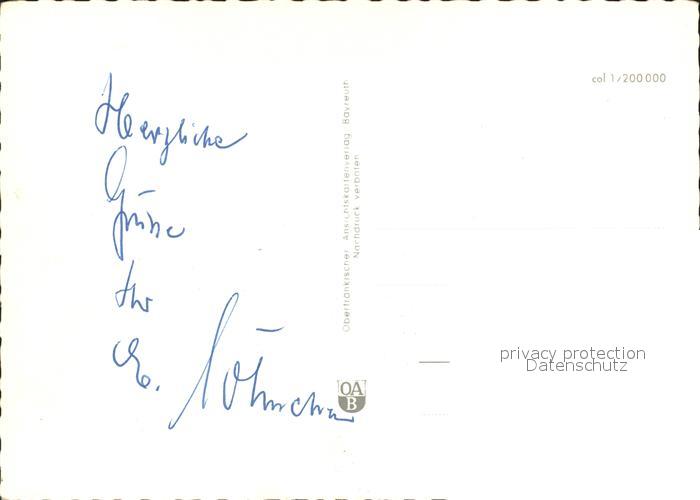 Herzliche
Grüsse
Ihr
col 1/200000
Oberfränkischer Ansichtskartenverlag Bayreuth
Nachdruck verboten
OA
B
privacy protection
Datenschutz